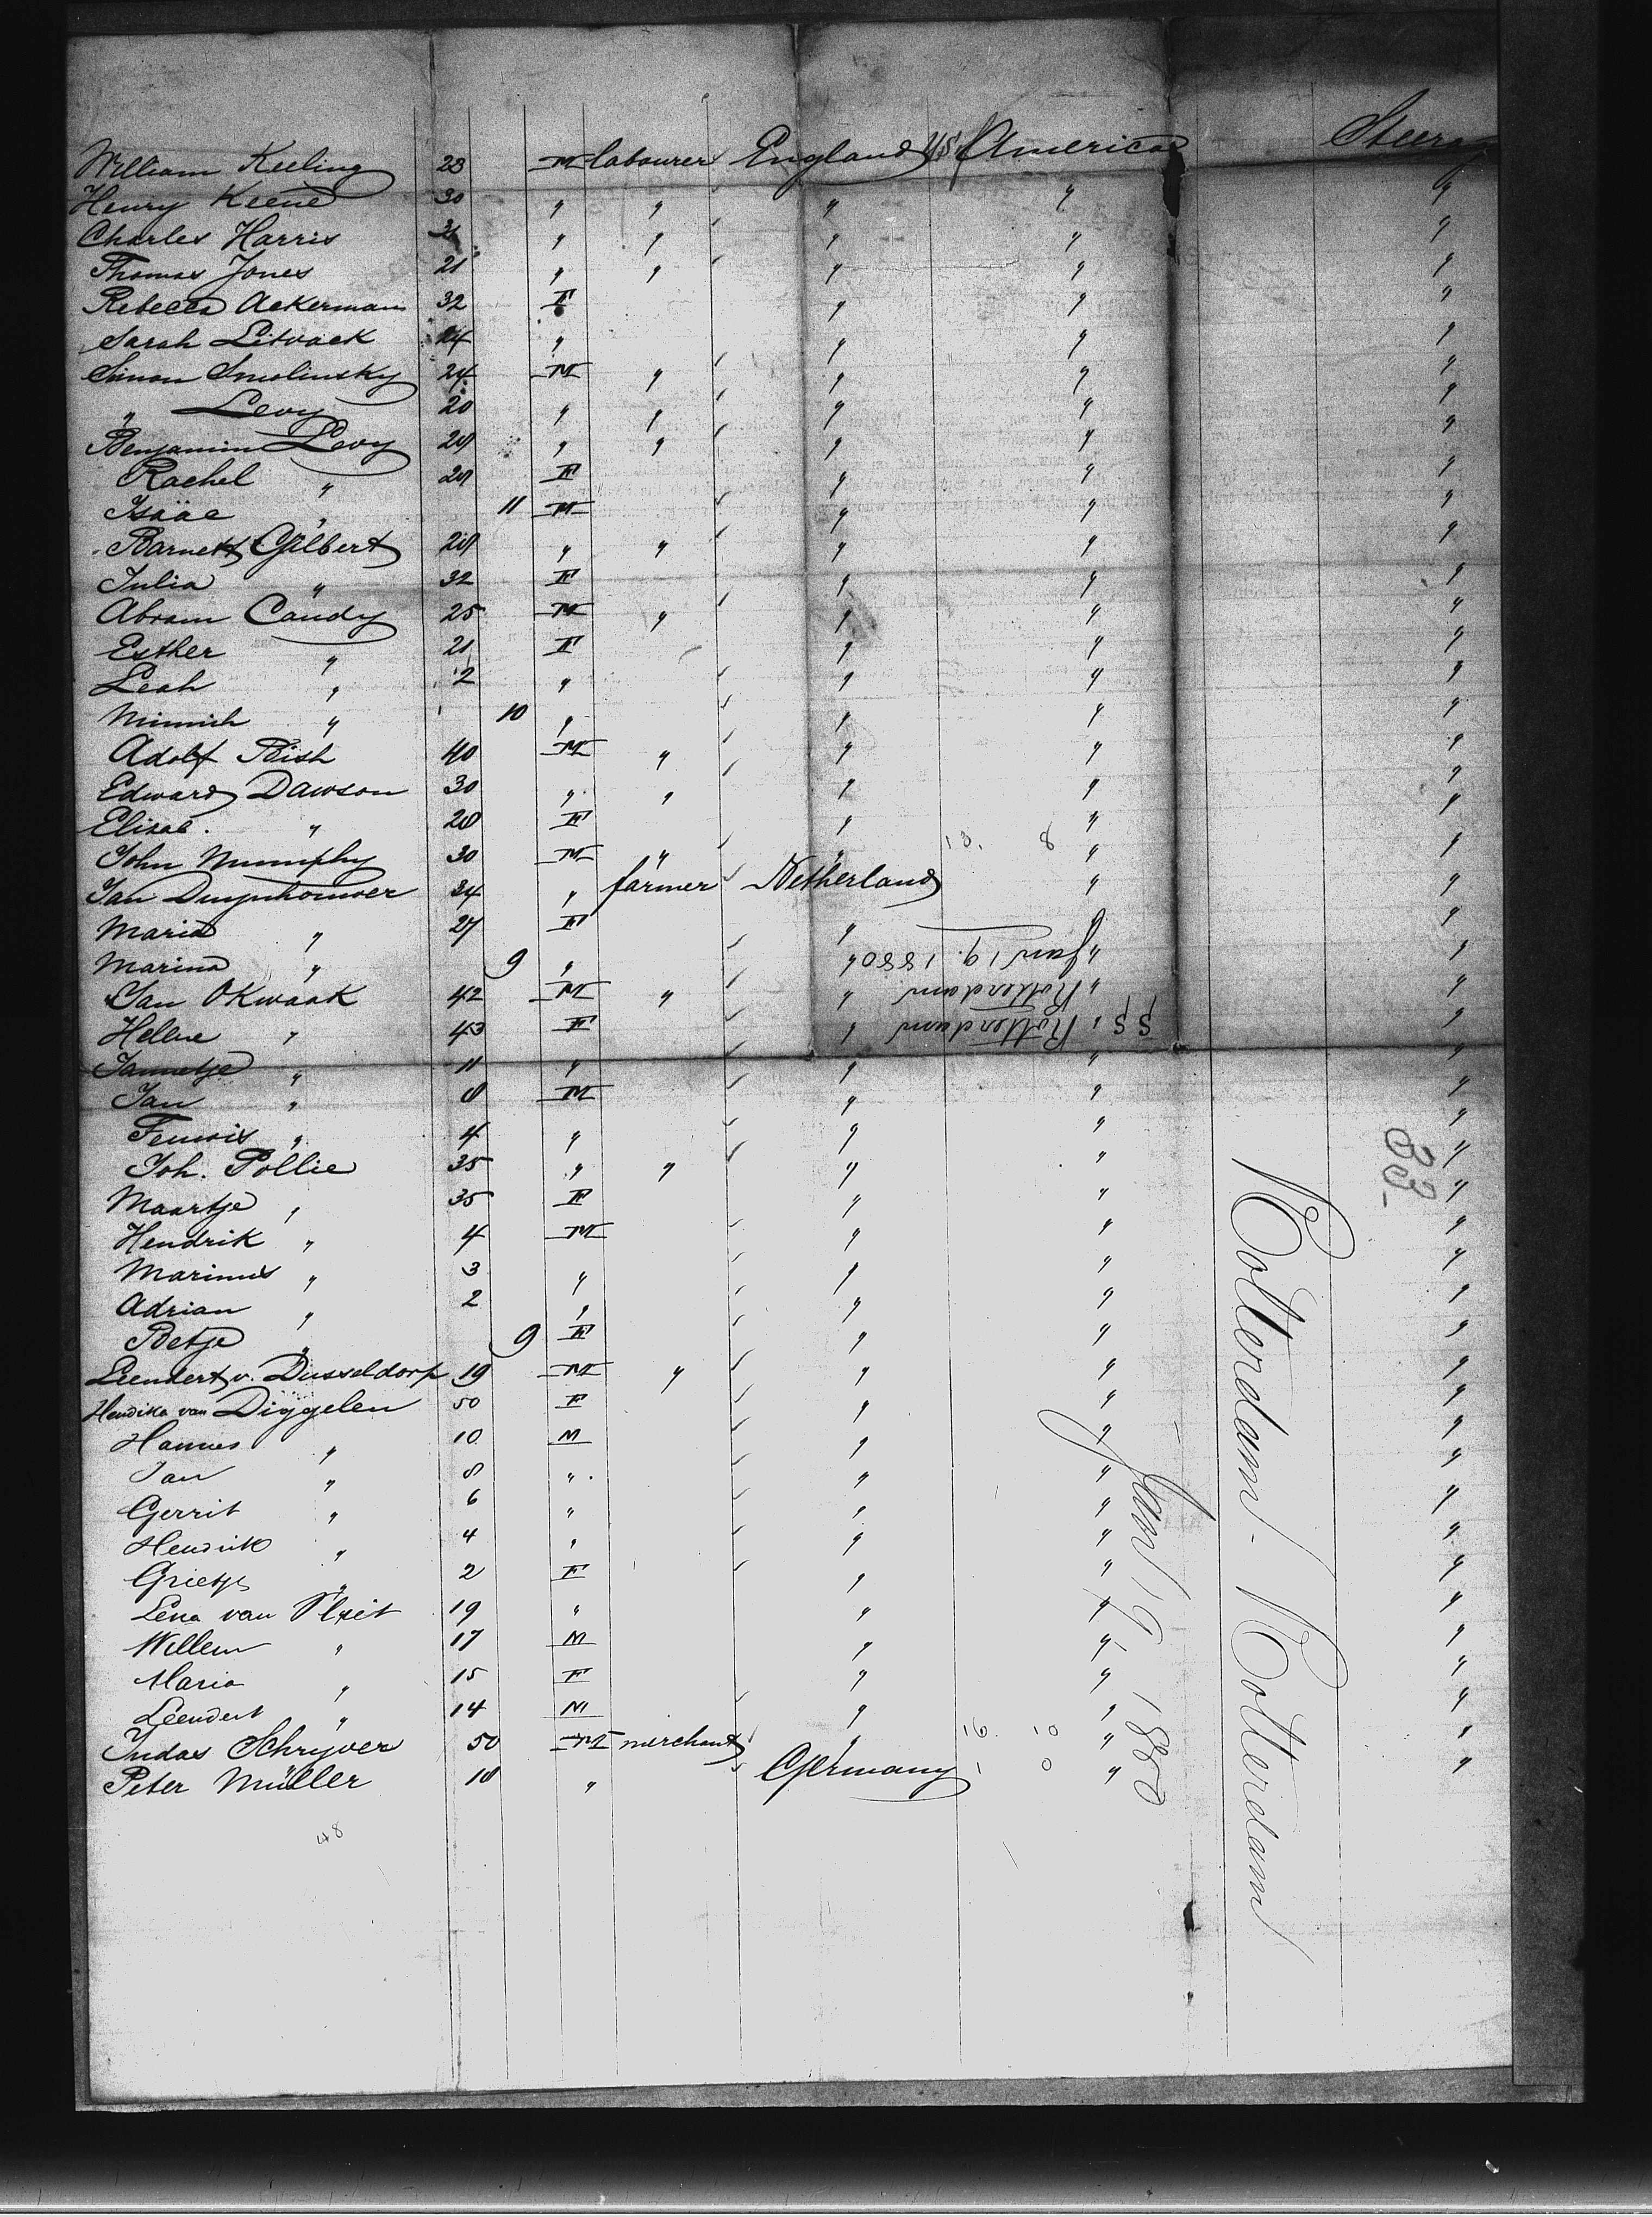 William Keeling 28 M labourer England U.S. of America Steerag
Henry Keene 30 " " " " "
Charles Harris " " " " "
Thomas Jones 21 " " " " "
Rebecca Ackerman 32 F " " "
Sarah Litvack 24 " " " "
Simon Smolinsky 24 M " " " "
" Levy 20 " " " " "
Benjamin Levy 28 " " " " "
Rachel " 28 F " " "
Isäac " 11 M " " "
Barnett Gilbert 28 " " " " "
Julia " 32 F " " "
Abram Candy 25 M " " " "
Esther " 21 F " " "
Leah " 2 " " " "
Minnich " 10 " " " "
Adolf Bish 40 M " " " "
Edward Dawson 30 " " " " "
Elisab. " 28 F " " "
John Mumphy 30 M " " 13. 8 " "
Jan Duynhouwer 34 " farmer Netherland " "
Maria " 27 F " " "
Marina " 9 " " " "
Jan Okwaak 42 M " " " "
Hellene " 43 F " " "
Jannetje " 11 " " " "
Jan " 8 M " " "
Teunis " 4 " " " "
Joh. Pollie 35 " " " " "
Maartje " 35 F " " "
Hendrik " 4 M " " "
Marinus " 3 " " " "
Adrian " 2 " " " "
Betje " 9 F " " "
Leendert v. Dusseldorp 19 M " " " "
Hendika van Diggelen 50 F " " "
Hannes " 10 M " " "
Jan " 8 " " " "
Gerrit " 6 " " " "
Hendrik " 4 " " " "
Grietje " 2 F " " "
Lena van 19 " " " "
Willem " 17 M " " "
Maria " 15 F " " "
Leendert " 14 M " " "
Judas Schryver 50 M merchant " 16. 10 " "
Peter Müller 18 " Germany 1 0 " "
48
SS, Rotterdam
Rotterdam
Jan 19. 1880
83-
Rotterdam - Rotterdam
Jan 19 1880